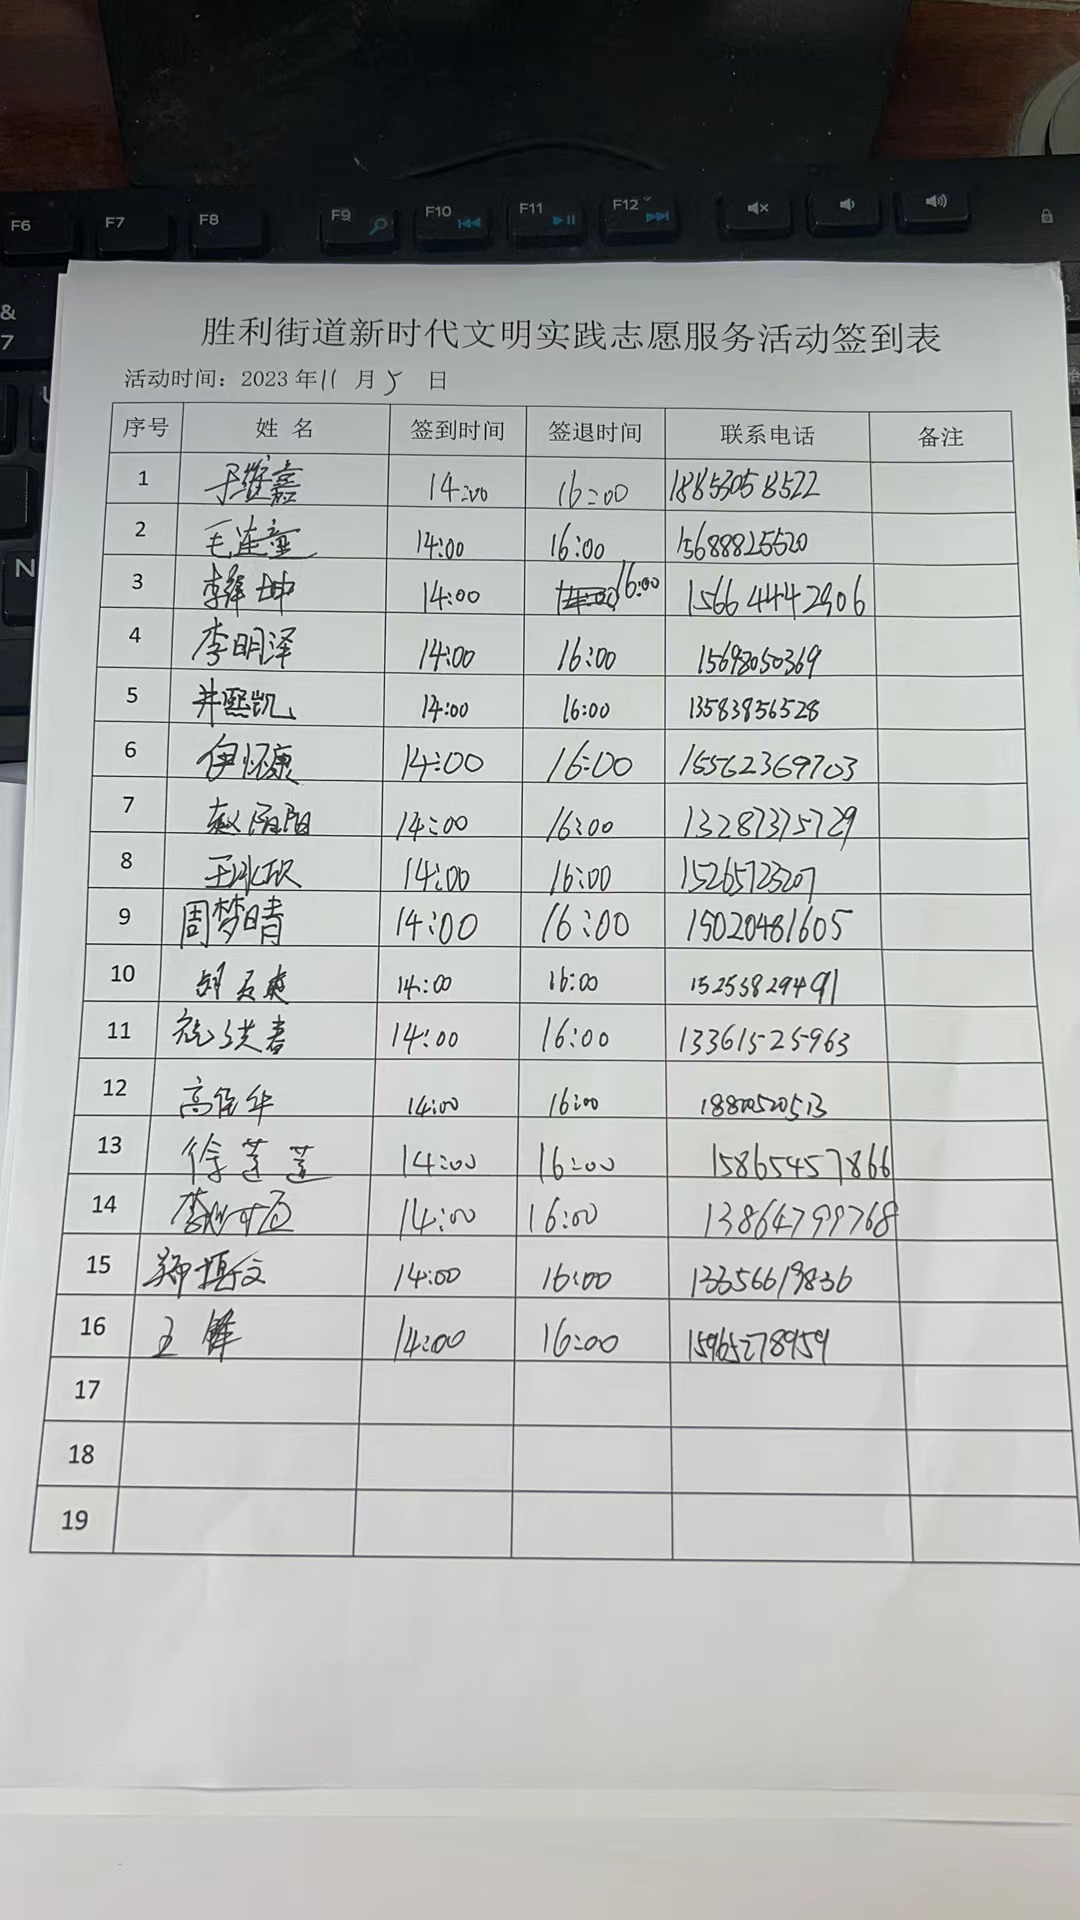 F6 F7 F8 F9 F10 F11 F12
&
7
N
胜利街道新时代文明实践志愿服务活动签到表
活动时间：2023 年 11 月 5 日
序号 姓 名 签到时间 签退时间 联系电话 备注
1 于维嘉 14:00 16:00
2 毛连童 14:00 16:00 15688825520
3 李绎坤 14:00 16:00 15664442906
4 李明泽 14:00 16:00 15698050369
5 井熙凯 14:00 16:00 13583856528
6 伊怀康 14:00 16:00 15562369703
7 赵陌阳 14:00 16:00 13287375729
8 14:00 16:00 15265723207
9 周梦晴 14:00 16:00 15020481605
10 14:00 16:00 15253829491
11 14:00 16:00 13361525963
12 14:00 16:00
13 徐莲莲 14:00 16:00 15865457866
14 14:00 16:00 13864799768
15 14:00 16:00 13356619836
16 王锋 14:00 16:00 15965278959
17
18
19